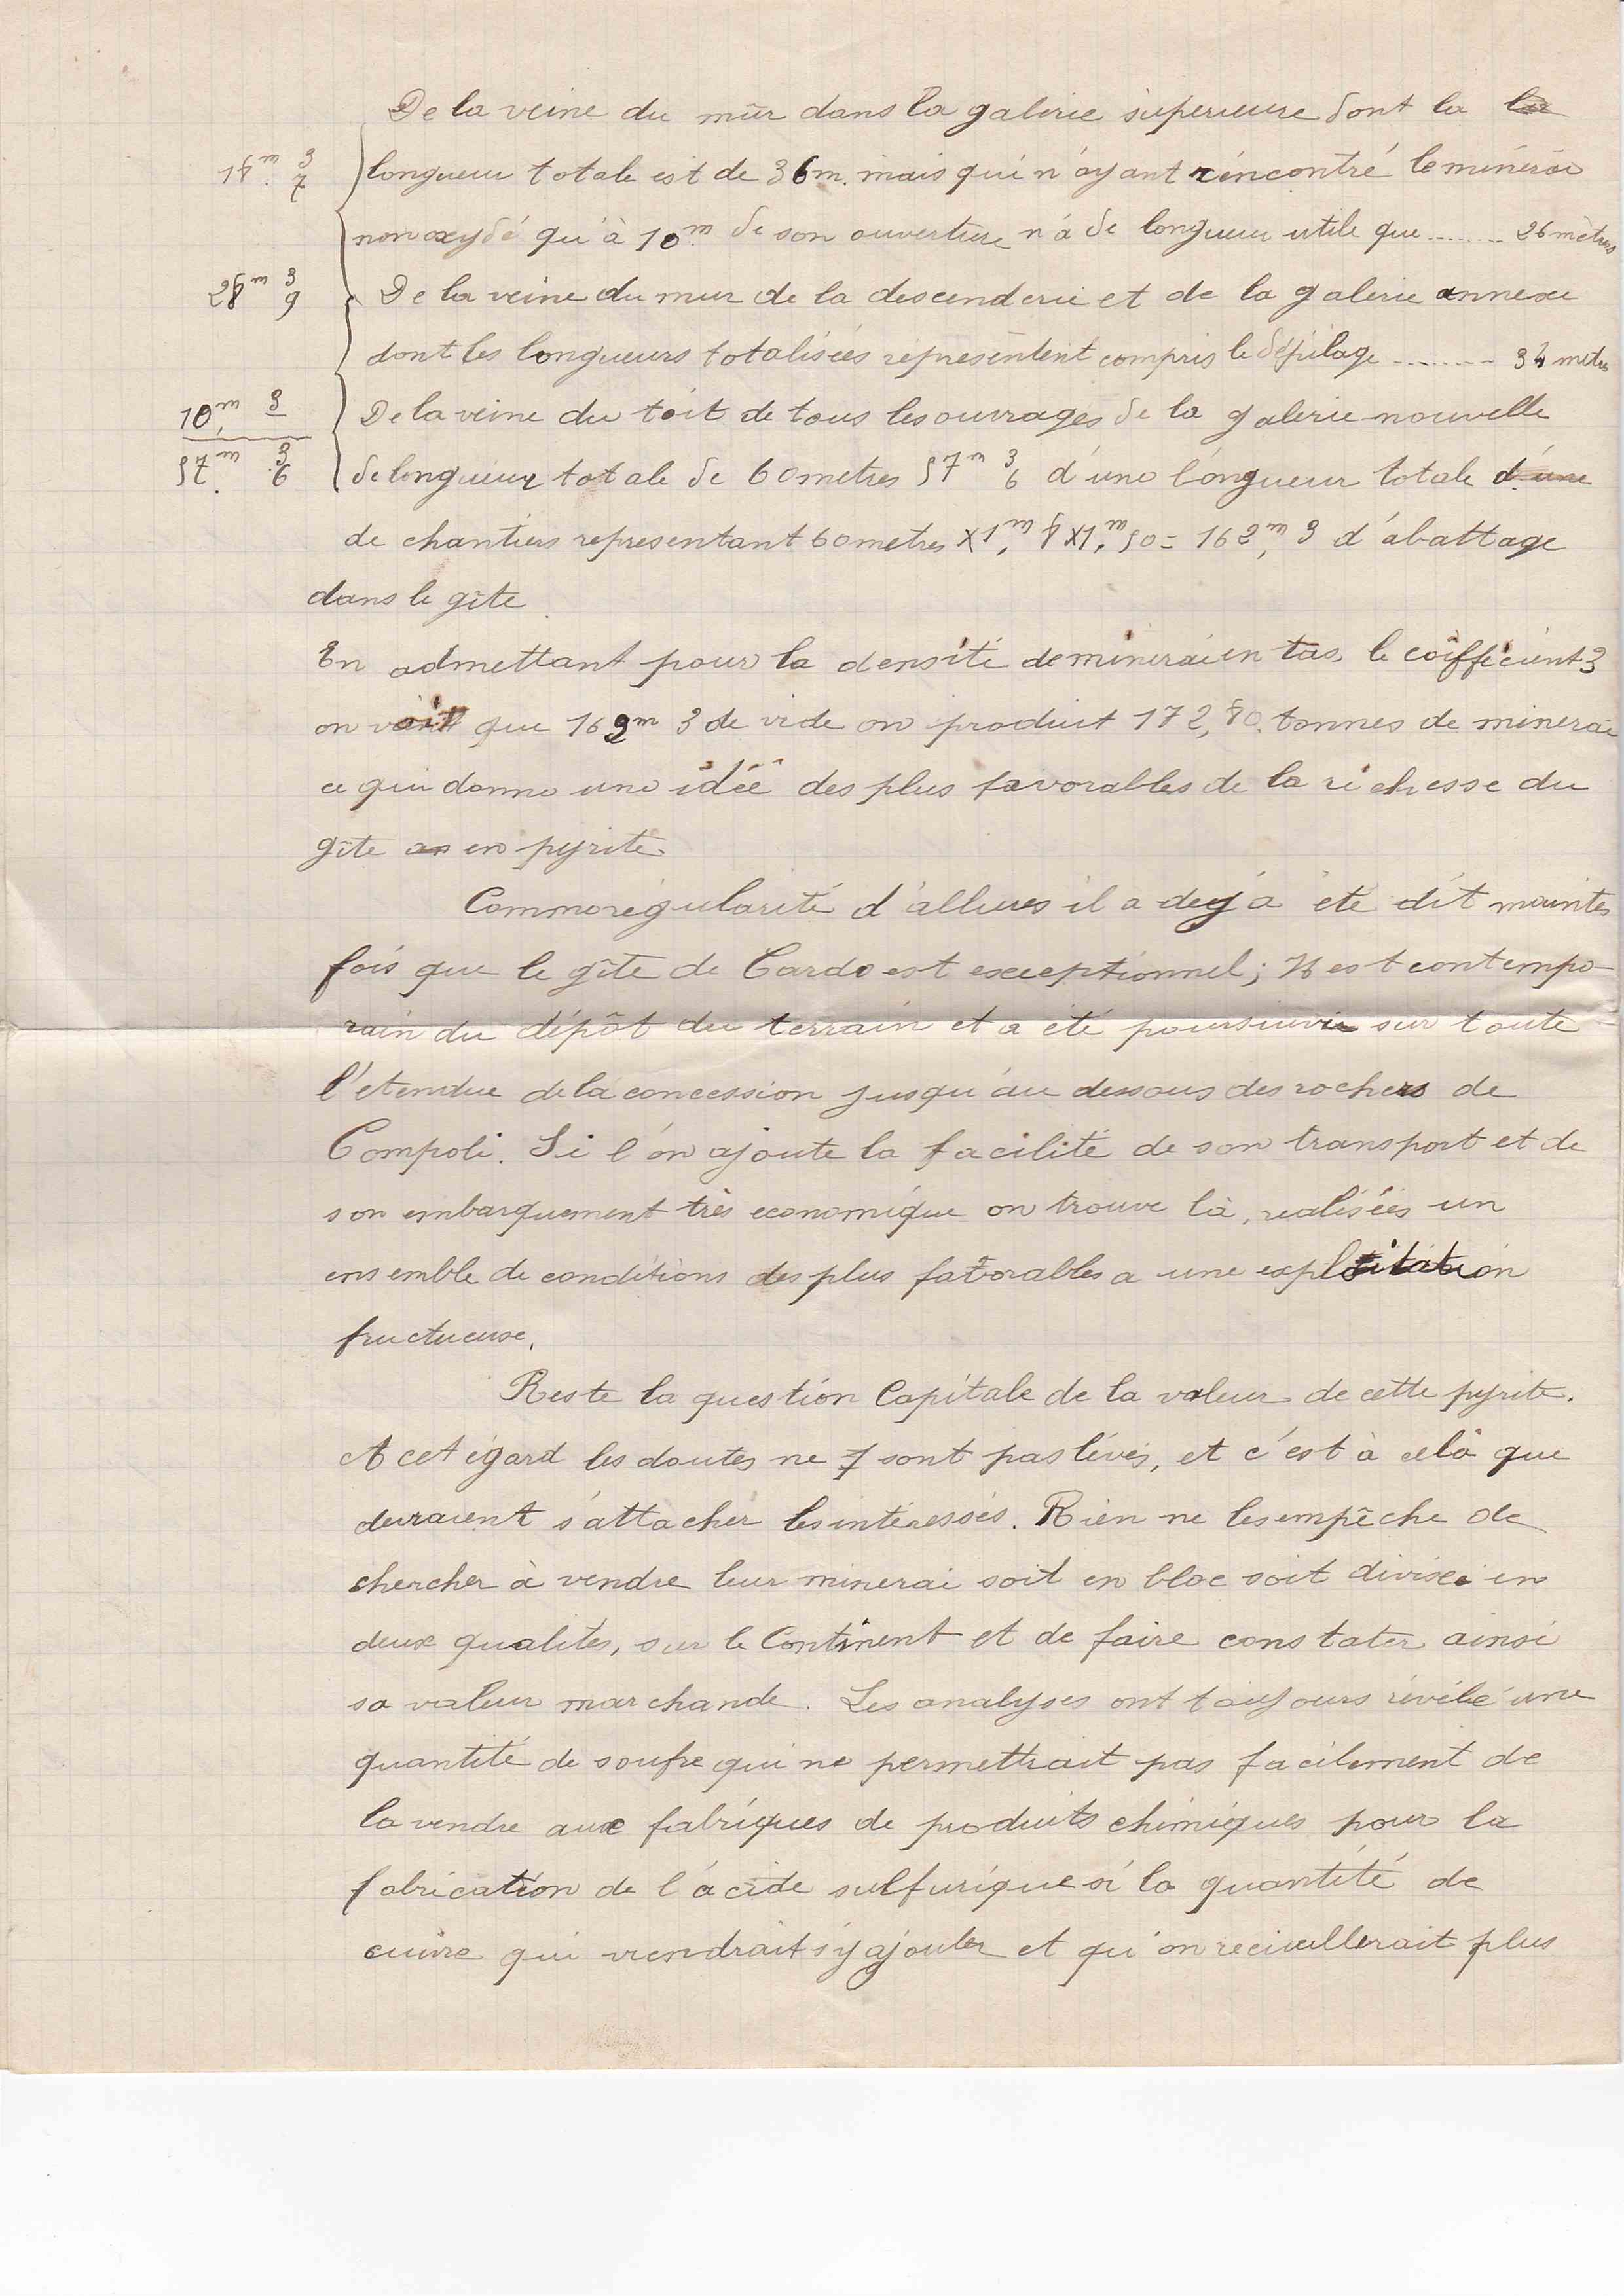 De la veine du mûr dans la galerie superieure dont la la
18m3 7 longueur totale est de 36m. mais qui n'ayant rencontré le minérai
non oxydé qu'à 10m de son ouverture n'a de longueur utile que ........ 26 mètres
28m3 9 De la veine du mur de la descenderie et de la galerie annexe
dont les longueurs totalisées représentent compris le dépilage ......... 34 metres
10,m3 De la veine du toit de tous les ouvrages de la galerie nouvelle
57m3 6 de longueur totale de 60 metres 57m3 6 d'une longueur totale d'une
de chantiers representant 60 metres X1,m8 X1,m50 = 162,m3 d'abattage
dans le gîte.
En admettant pour la densité de minerai en tas le coifficient 3
on voit que 162m3 de vide on produit 172,80. tonnes de minerai
ce qui donne une idée des plus favorables de la richesse du
gîte en pyrite.
Comme régularité d'allures il a deja été dit maintes
fois que le gîte de Cardo est exceptionnel; Il est contempo-
rain du dépôt du terrain et a été poursuivie sur toute
l'etendue de la concession jusqu'au dessous des rochers de
Compoli. Si l'on ajoute la facilité de son transport et de
son embarquement très economique on trouve là, realisées un
ensemble de conditions des plus favorables a une exploitation
fructueuse.
Reste la question Capitale de la valeur de cette pyrite.
A cet égard les doutes ne sont pas lévés, et c'est à celà que
devraient s'attacher les intéressés. Rien ne les empêche de
chercher à vendre leur minerai soit en bloc soit divisée en
deux qualités, sur le Continent et de faire constater ainsi
sa valeur marchande. Les analyses ont toujours révélé une
quantité de soufre qui ne permettrait pas facilement de
la vendre aux fabriques de produits chimiques pour la
fabrication de l'acide sulfurique si la quantité de
cuivre qui viendrait s'y ajouter et qu'on recieullerait plus